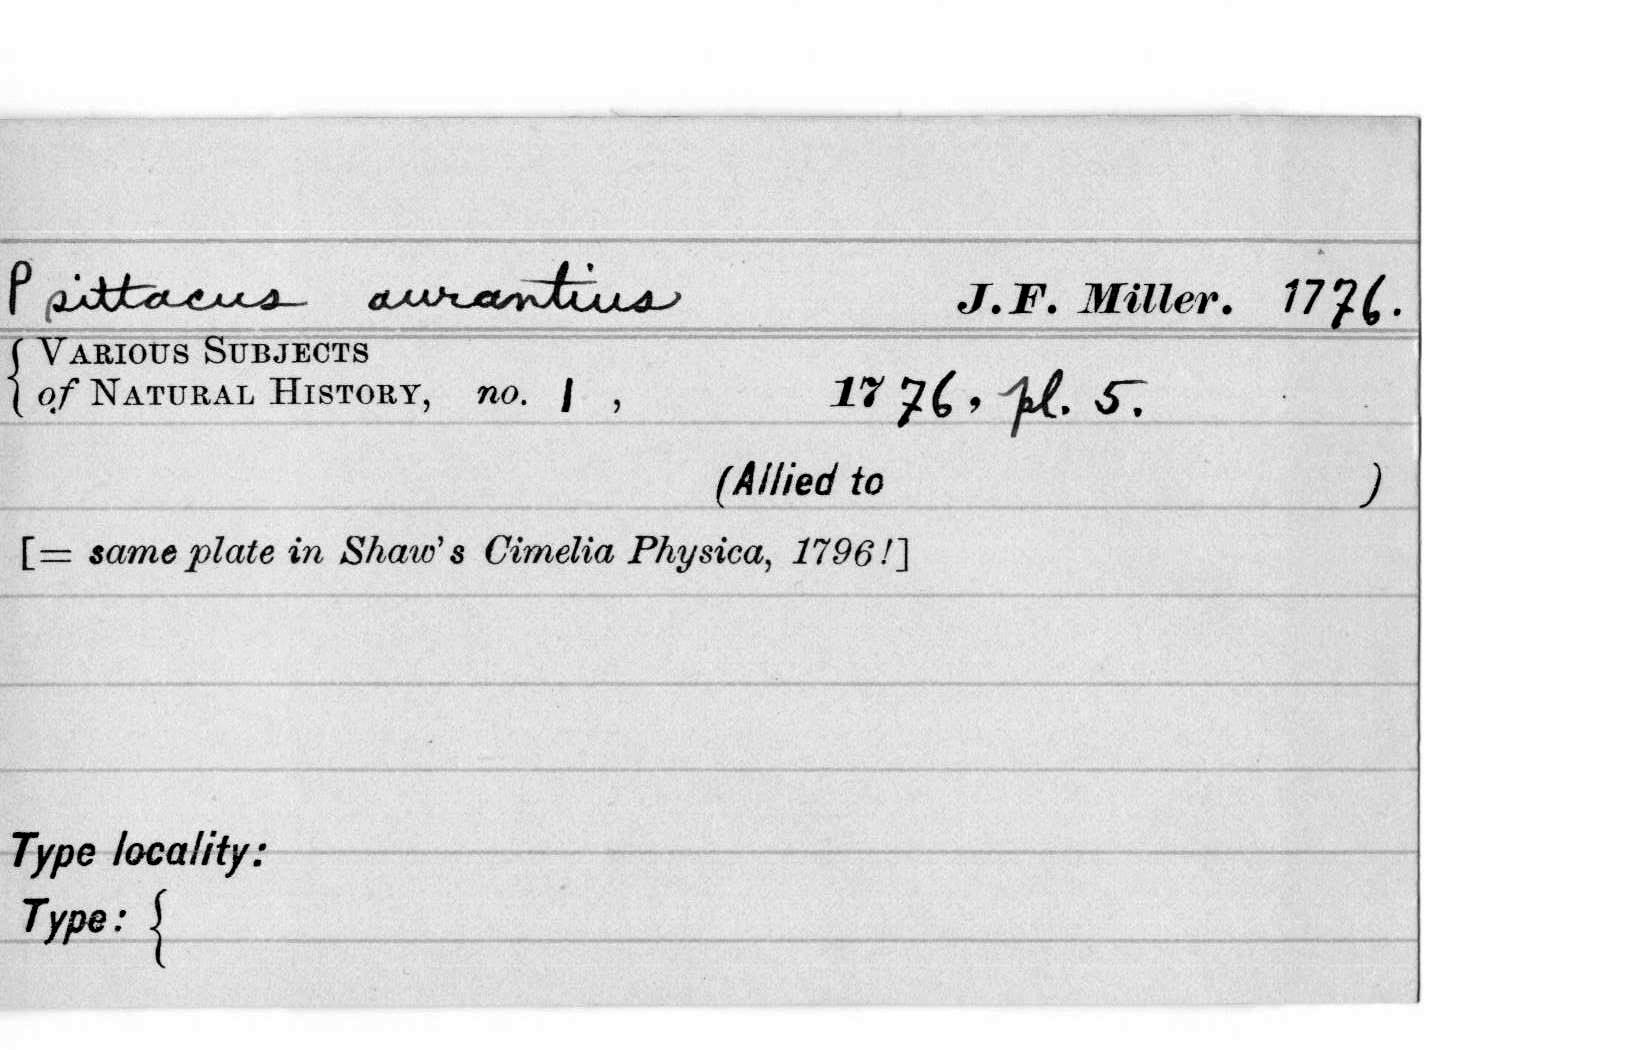 Psittacus aurantius J.F. Miller. 1776.
{ VARIOUS SUBJECTS
of NATURAL HISTORY, no. 1, 1776, pl. 5.
(Allied to )
[= same plate in Shaw's Cimelia Physica, 1796!]
Type locality:
Type: {